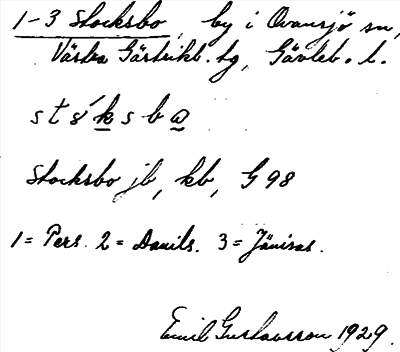 1-3 Stocksbo, by i Ovansjö sn,
Västra Gästrikl. tg, Gävleb. l.
stsksba
Stocksbo jb, kb, G98
1 = Pers. 2 = Danils. 3 = Jönsas.
Emil Gustavsson 1929.